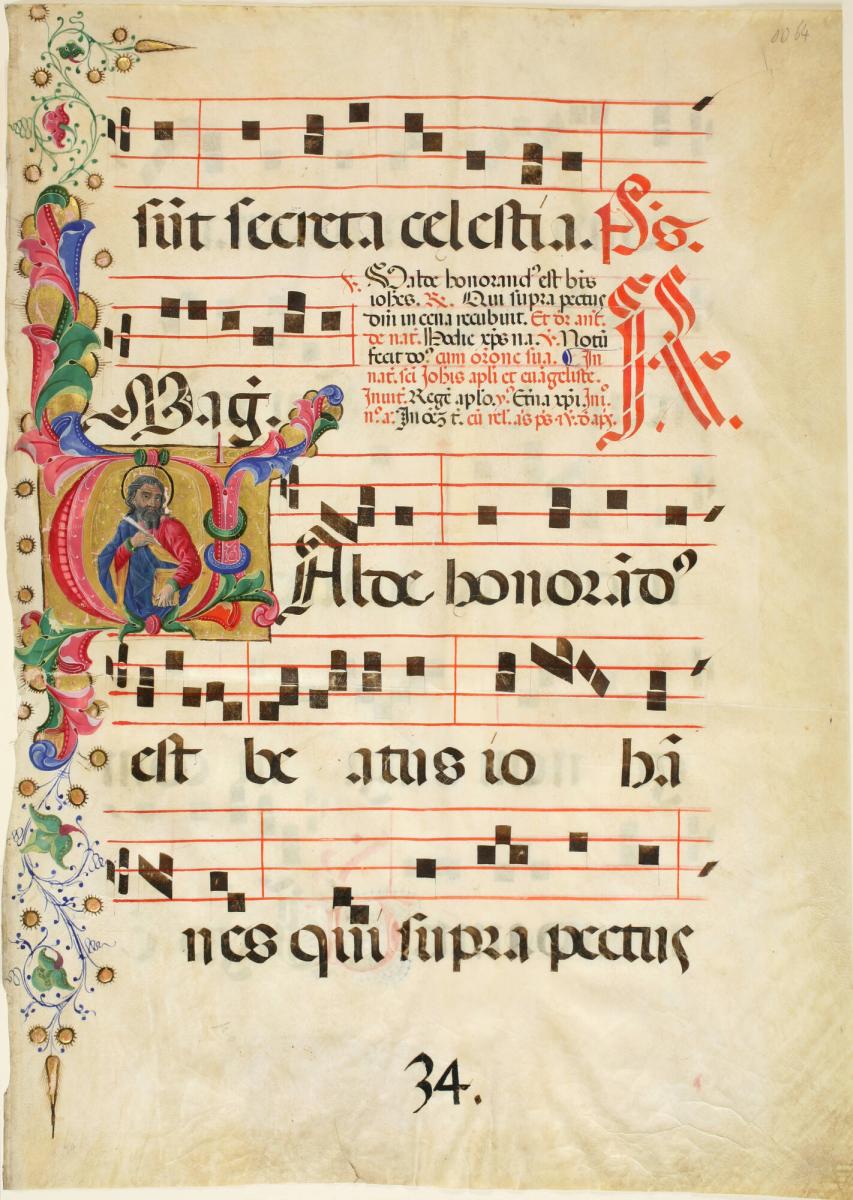 0064
sūt secreta celestia. Ps.
V. Valde honorand' est bt̄s
ioh̄es. R. Qui supra pectus
dn̄i in cena recubuit. Et dr̄ ant.
de nat. Hodie xp̄s na. V. Notū
fecit do' cum orōne sua. In R
nat. sc̄i ioh̄is apl̄i et euāgeliste.
Mag. Inuit. Regē aplo. y' Et̄na xpi In i.
n° a. In oēz t.
VAlde honorād'
est be atus io hā
nes qui supra pectus
34.